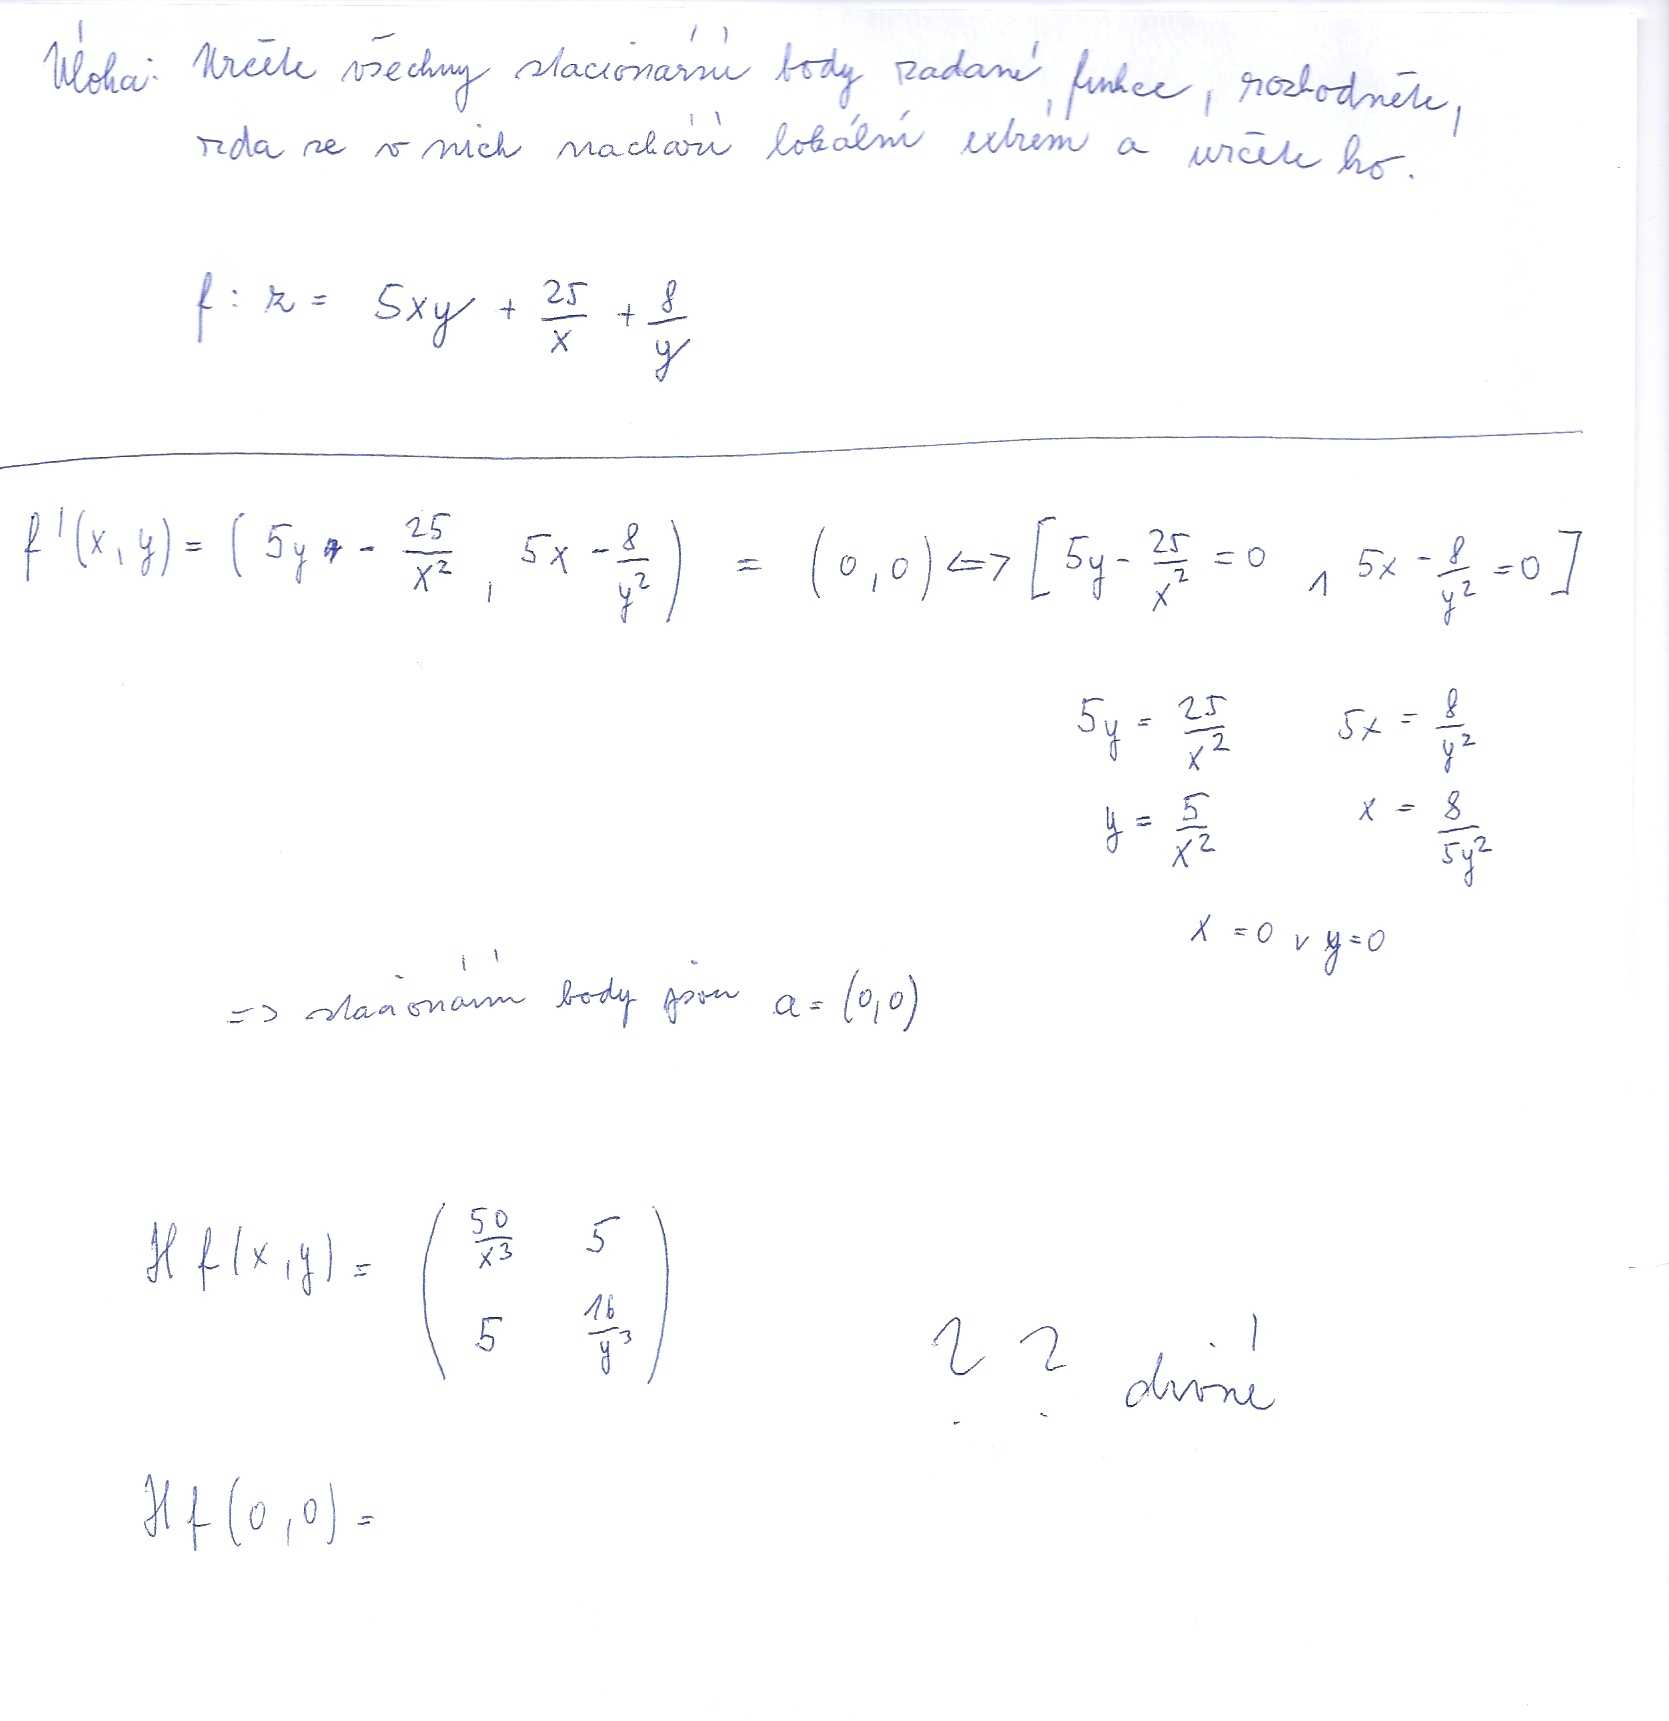 Úloha: Určete všechny stacionární body zadané funkce, rozhodněte,
zda se v nich nachází lokální extrém a určete ho.
f : z = 5xy + 25/x + 8/y
f'(x, y) = ( 5y - 25/x² , 5x - 8/y² ) = (0,0) <=> [ 5y - 25/x² = 0 ∧ 5x - 8/y² = 0 ]
5y = 25/x² 5x = 8/y²
y = 5/x² x = 8/5y²
x = 0 v y = 0
=> stacionární body jsou a = (0,0)
H f(x, y) = ( 50/x³ 5
5 16/y³ )
? ? divné
H f(0,0) =